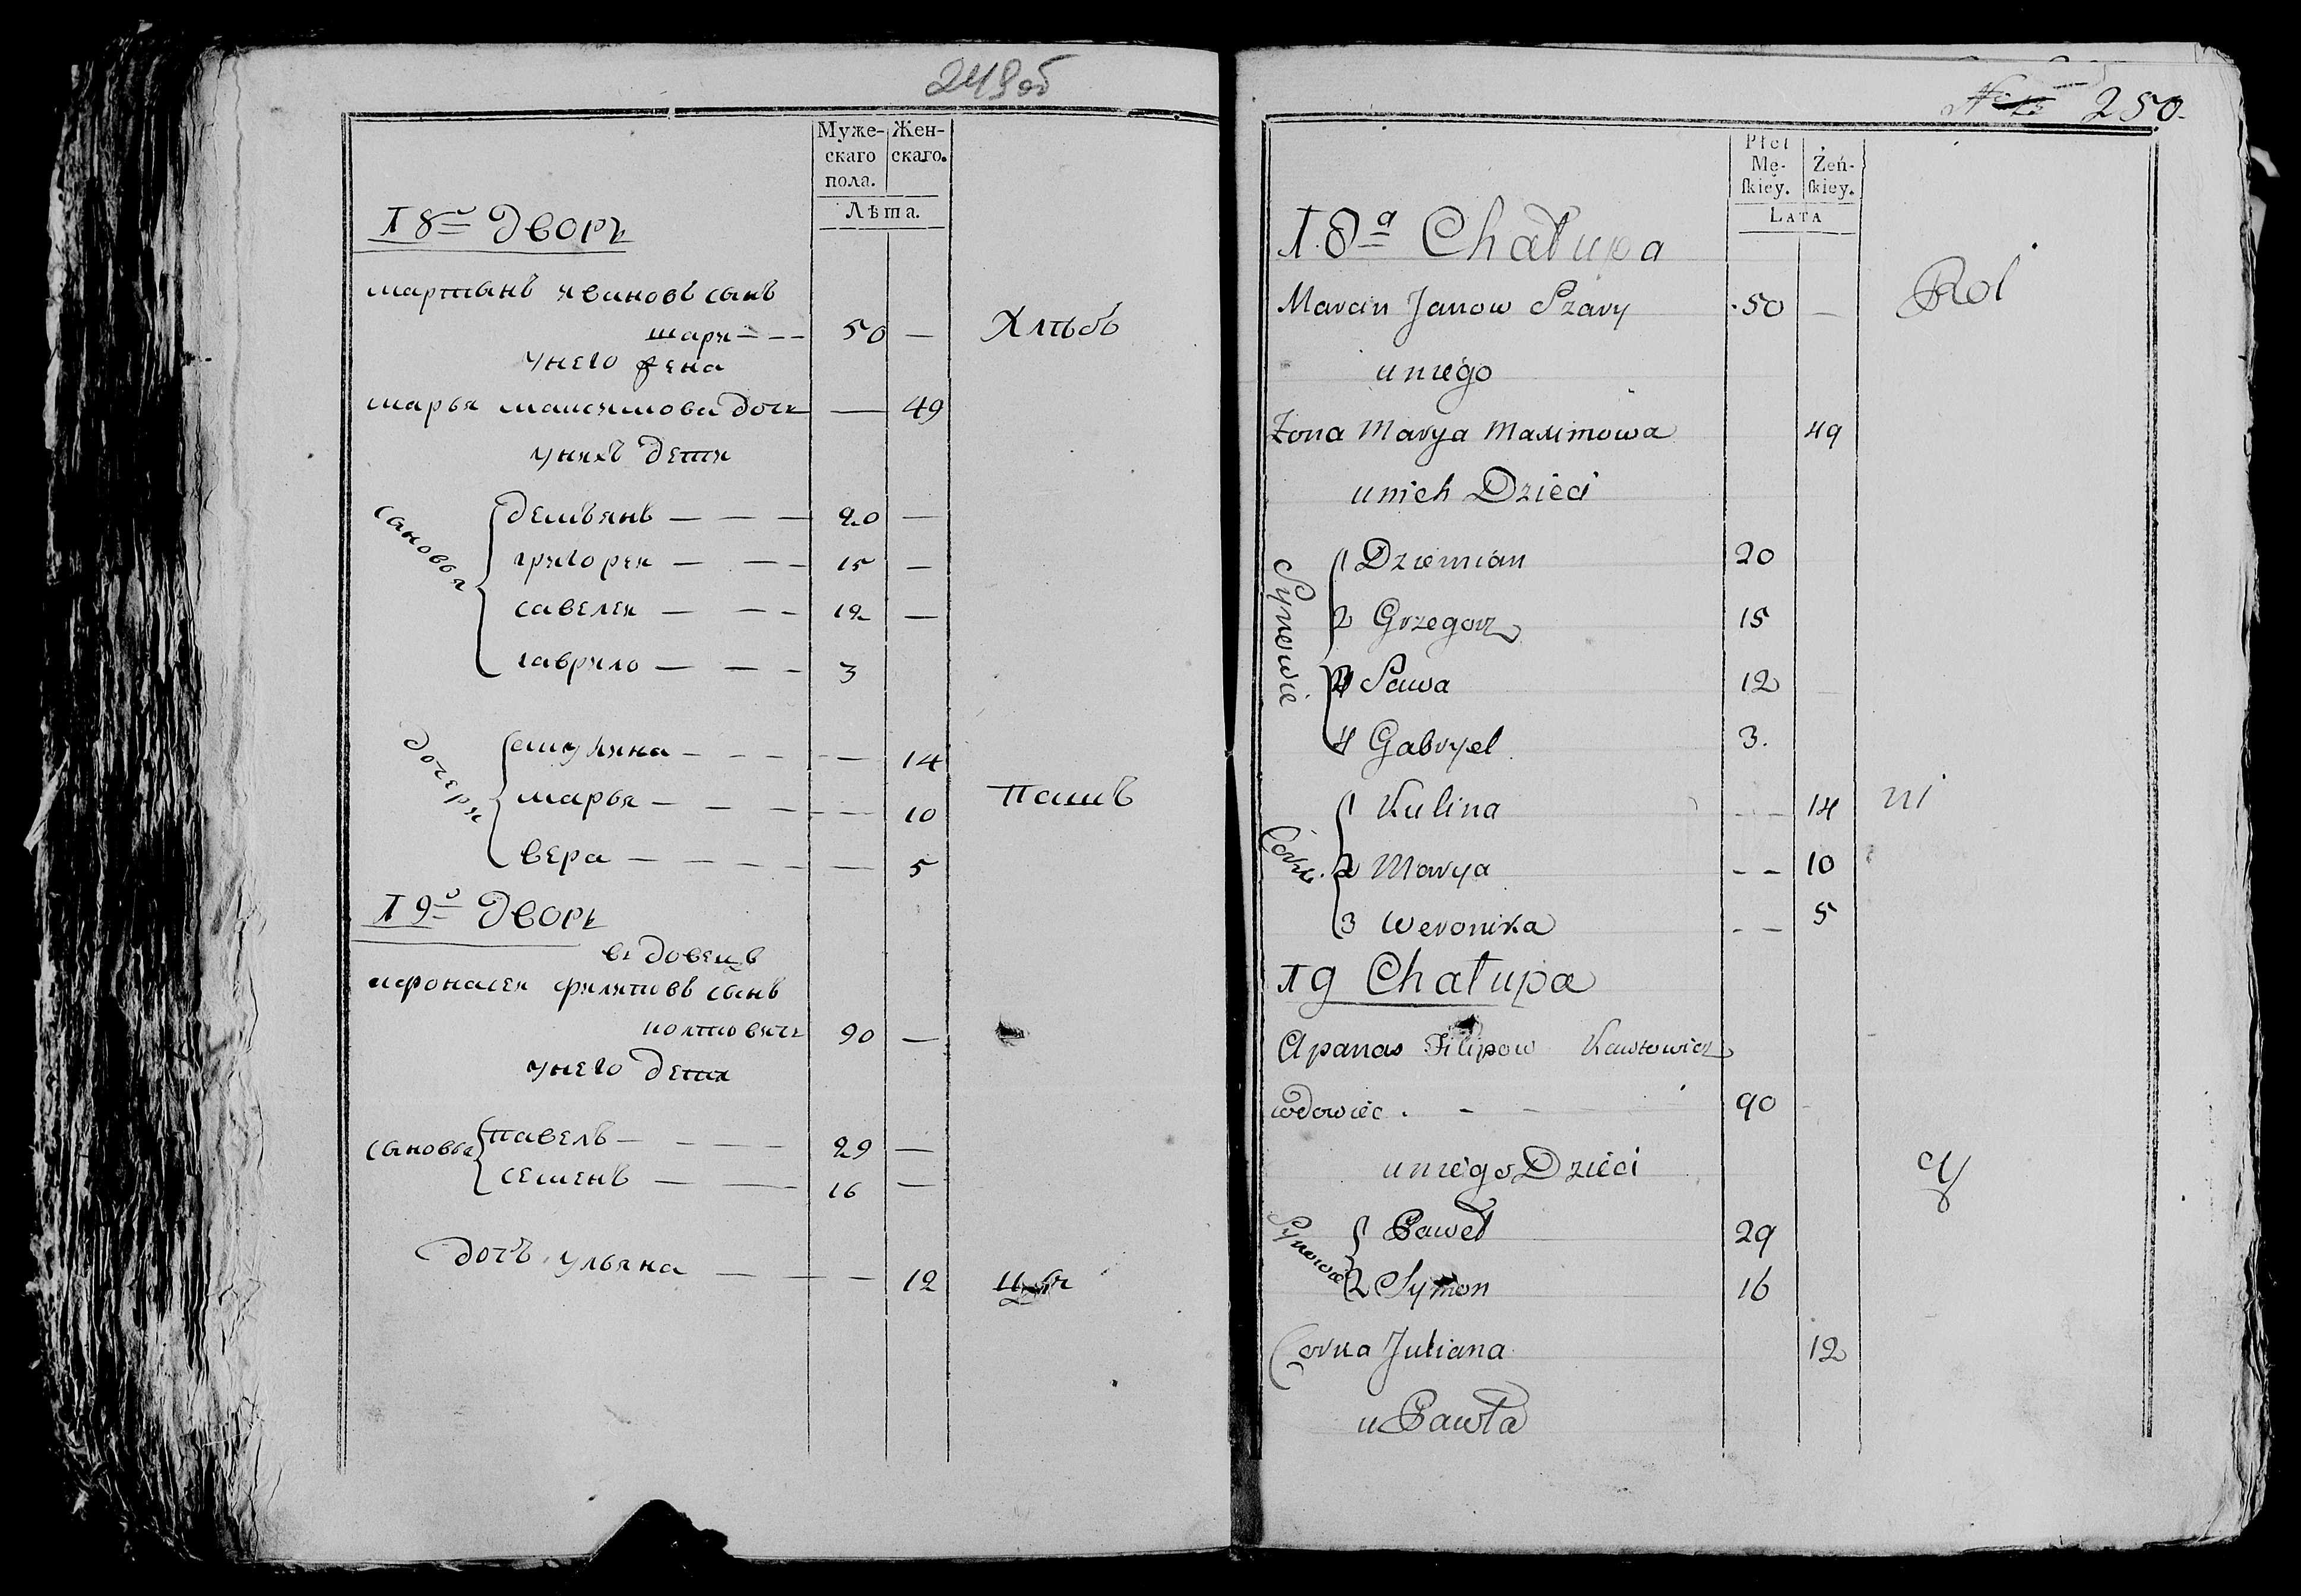 249об
Муже-
скаго
пола.
Жен-
скаго.
Лѣта.
18й дворъ
мартынъ ивановъ сынъ
шари — — — 50 — Хлѣбъ
унего жена
марья максимова дочь — 49
унихъ дети
сановья
демьянъ — — — 20 —
григореи — — — 15 —
савелеи — — — 12 —
гаврило — — — 3
дочери
акулина — — — — 14
марья — — — — 10 Пашъ
вера — — — — 5
19й дворъ
вдовецъ
афонасеи филиповъ сынъ
90 —
унего дети
сыновья
павелъ — — — 29 —
семенъ — — 16 —
дочъ ульяна — — — 12
250.
Płci
Mę-
ſkiéy.
Żeń-
ſkiey.
Lata
18a Chałupa
Marcin Janow Szary 50 — Rol
uniego
Żona Marya Maximowa 49
unich Dzieci
Synowie
1 Dziemian 20
2 Grzegorz 15
3 Sawa 12
4 Gabryel 3.
Córk.
1 Kulina — — 14 ni
2 Marya — — 10
3 Weronika — — 5
19 Chałupa
Apanas Filipow
wdowiec . — — 90
uniego Dzieci cy
Synowie
1 Paweł 29
2 Symon 16
Corka Juliana 12
u Pawła